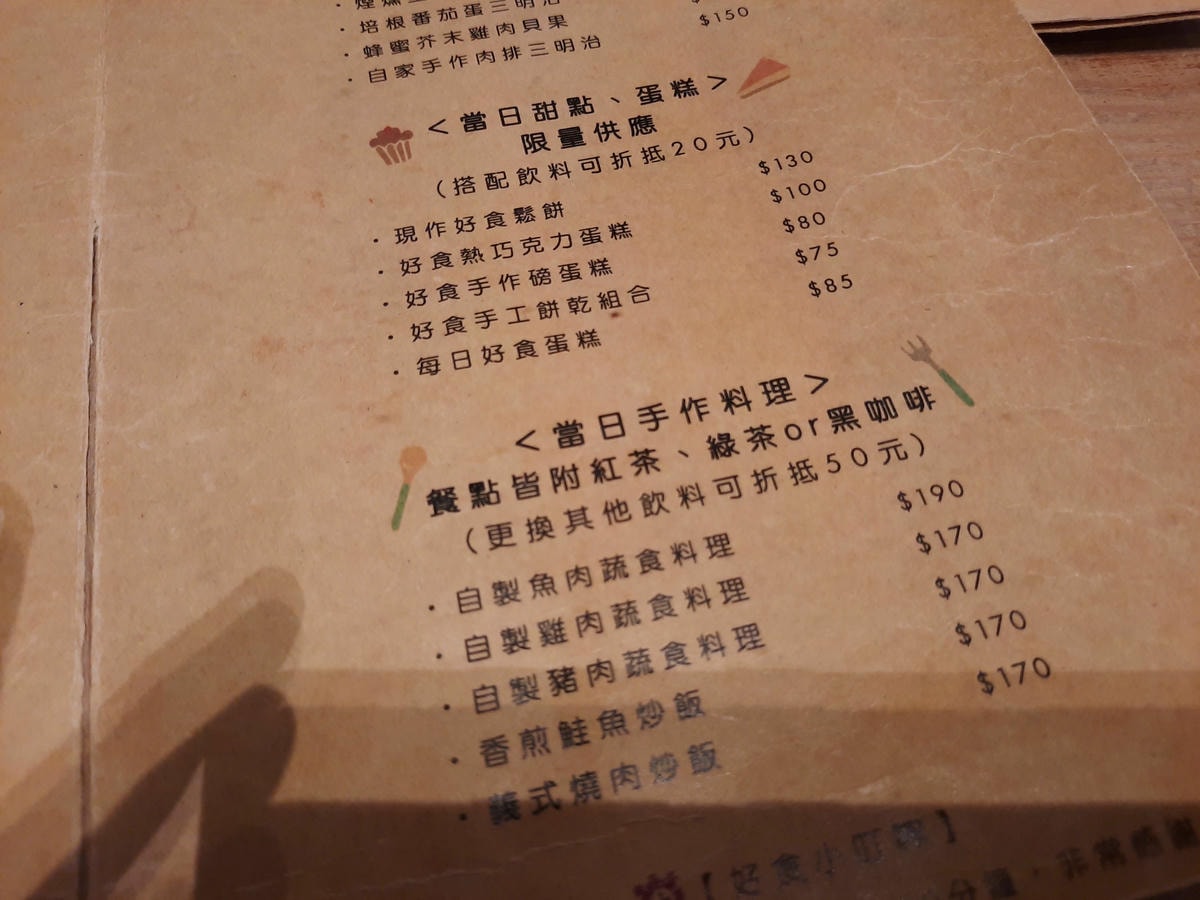 · 培根番茄蛋三明治
· 蜂蜜芥末雞肉貝果 $150
· 自家手作肉排三明治
<當日甜點、蛋糕>
限量供應
(搭配飲料可折抵20元)
· 現作好食鬆餅 $130
· 好食熱巧克力蛋糕 $100
· 好食手作磅蛋糕 $80
· 好食手工餅乾組合 $75
· 每日好食蛋糕 $85
<當日手作料理>
餐點皆附紅茶、綠茶or黑咖啡
(更換其他飲料可折抵50元)
· 自製魚肉蔬食料理 $190
· 自製雞肉蔬食料理 $170
· 自製豬肉蔬食料理 $170
· 香煎鮭魚炒飯 $170
· 義式燒肉炒飯 $170
【好食小叮嚀】
非常感謝